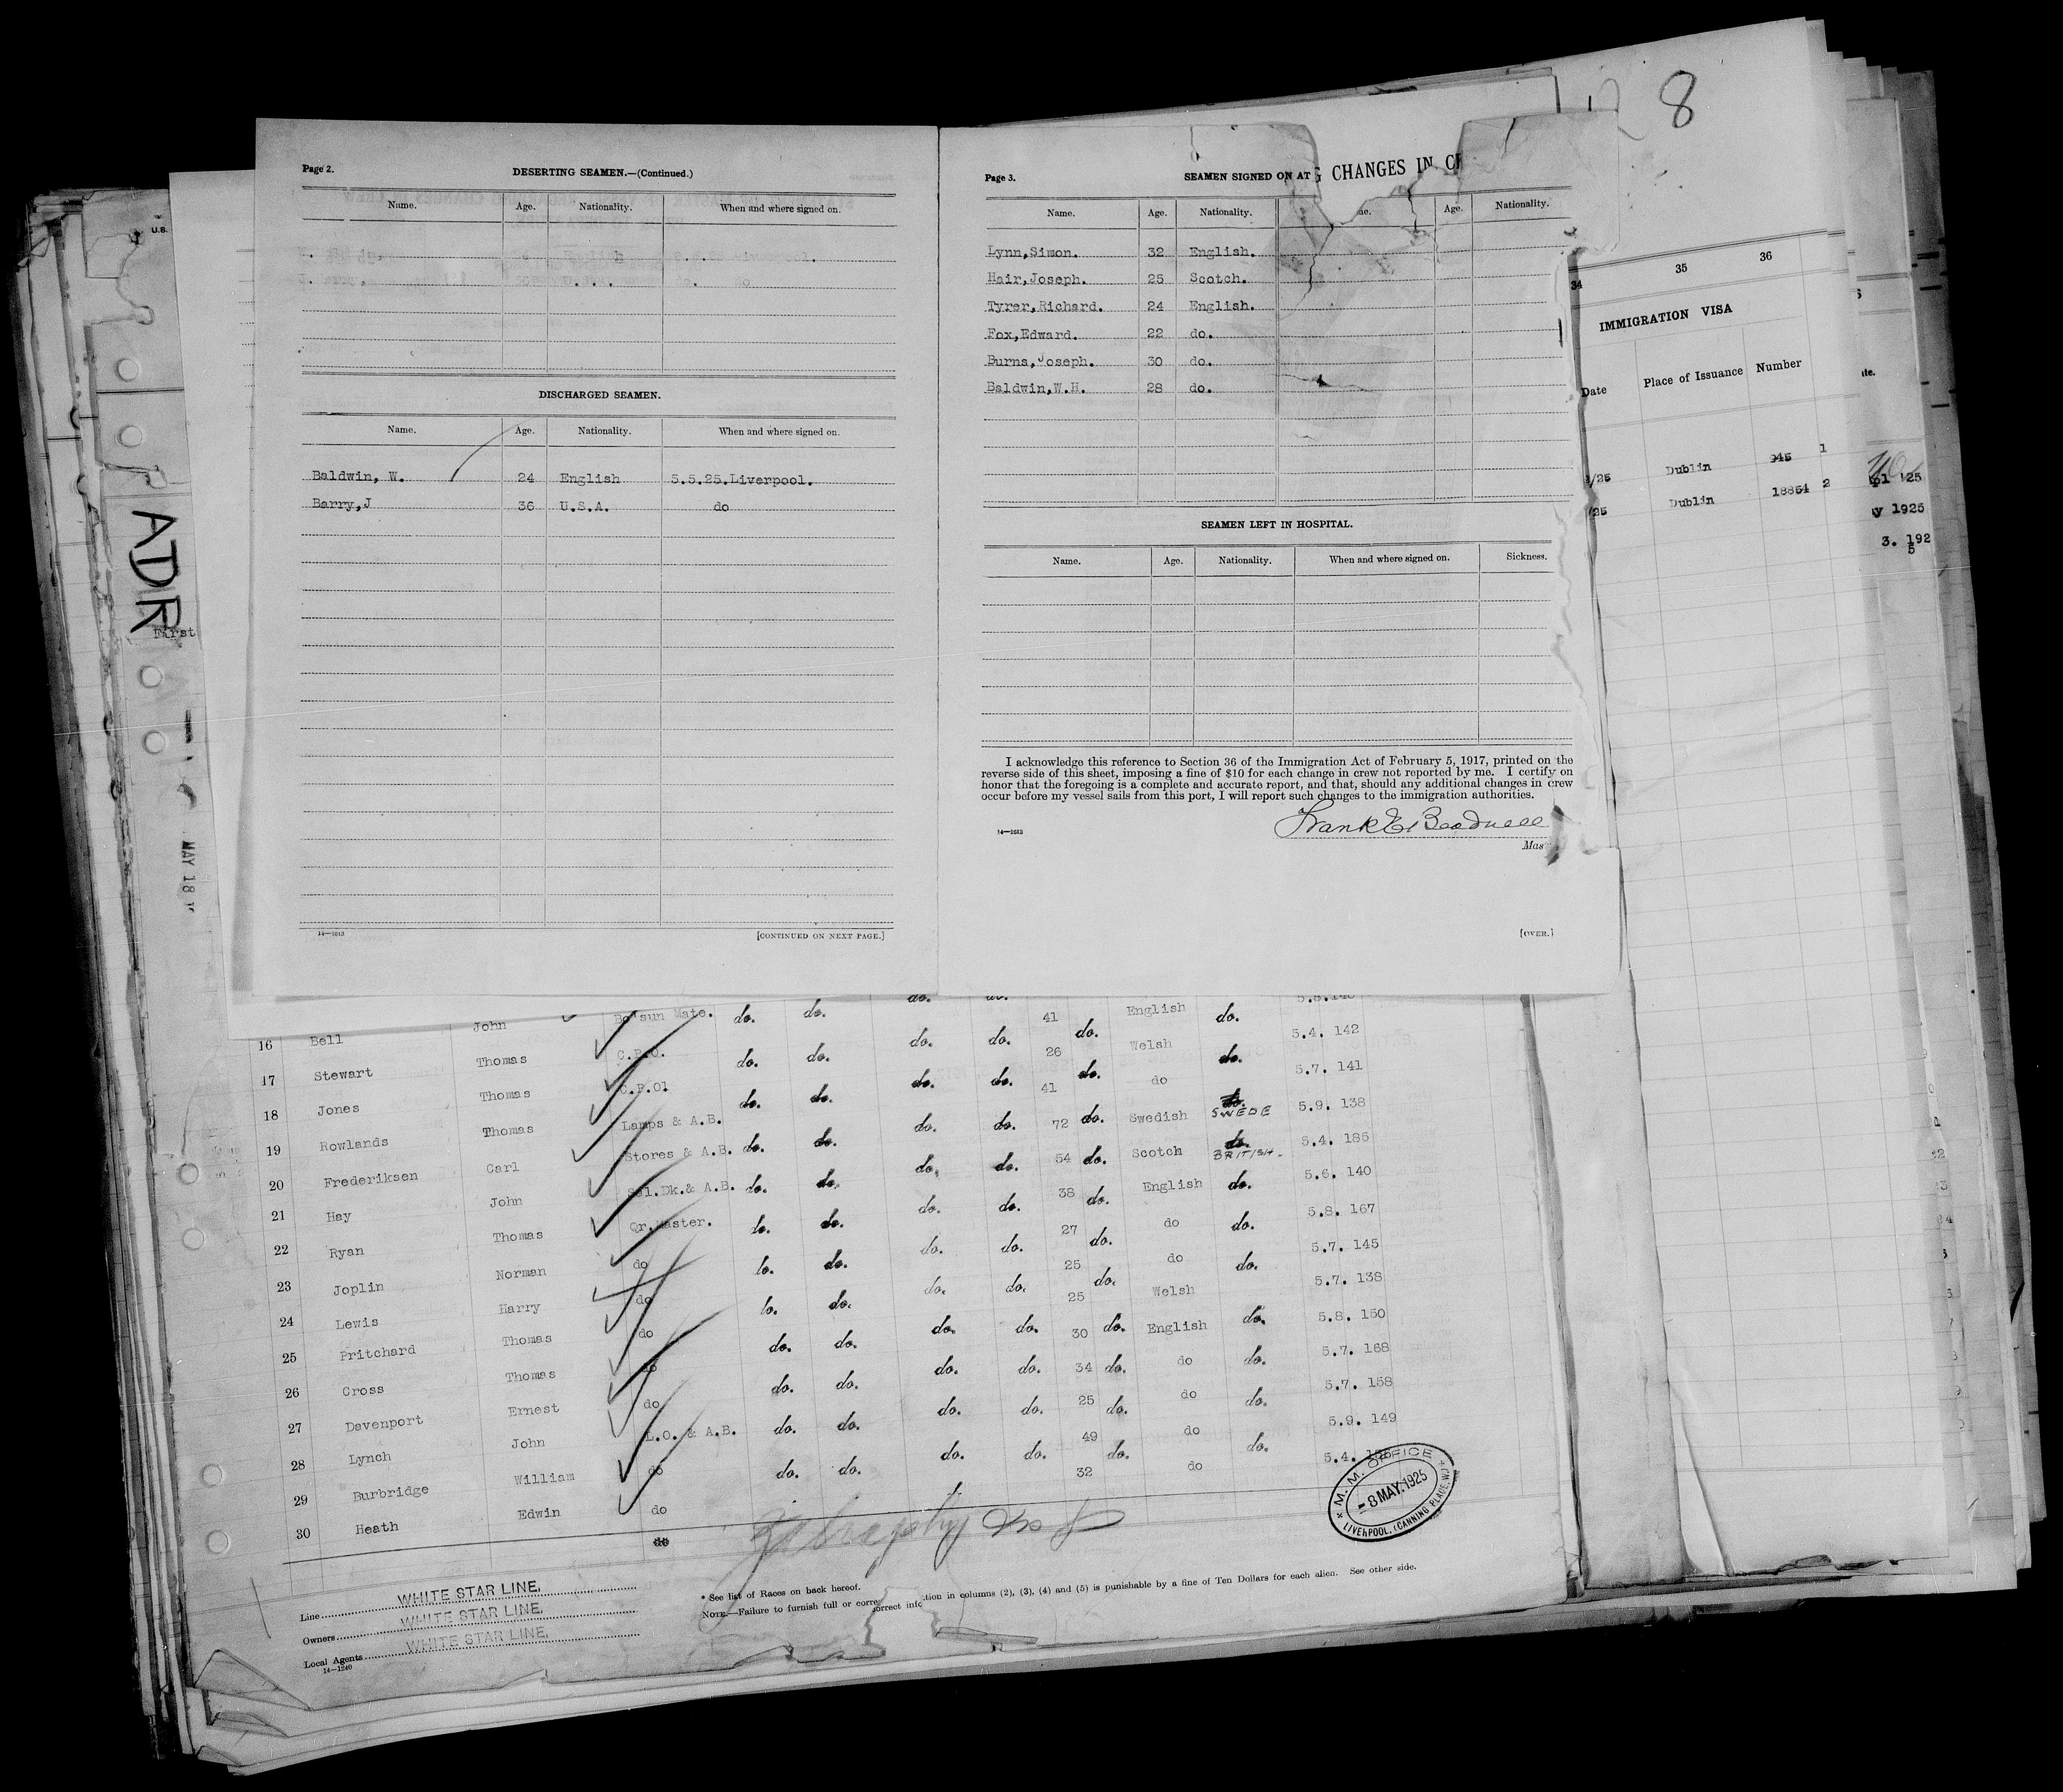 8
Page 2.
DESERTING SEAMEN.—(Continued.)
Name. Age. Nationality. When and where signed on.
DISCHARGED SEAMEN.
Name. Age. Nationality. When and where signed on.
Baldwin, W. 24 English 5.5.25.Liverpool.
Barry,J 36 U.S.A. do
14—1613
[CONTINUED ON NEXT PAGE.]
Page 3.
SEAMEN SIGNED ON AT
G CHANGES IN
Name. Age. Nationality. Age. Nationality.
Lynn,Simon. 32 English.
Hair,Joseph. 25 Scotch.
Tyrer,Richard. 24 English.
Fox,Edward. 22 do.
Burns,Joseph. 30 do.
Baldwin,W.H. 28 do.
SEAMEN LEFT IN HOSPITAL.
Name. Age. Nationality. When and where signed on. Sickness.
I acknowledge this reference to Section 36 of the Immigration Act of February 5, 1917, printed on the
reverse side of this sheet, imposing a fine of $10 for each change in crew not reported by me. I certify on
honor that the foregoing is a complete and accurate report, and that, should any additional changes in crew
occur before my vessel sails from this port, I will report such changes to the immigration authorities.
14—1613
Mas
[OVER.]
34 35 36
IMMIGRATION VISA
Date Place of Issuance Number
/25 Dublin 945 1
/25 Dublin 18854 2
25
y 1925
3. 192
5
U.S.
ADR
First
MAY 18
16 Bell John Bo'sun Mate. do. do. do. 41 English do.
17 Stewart Thomas C.P.O. do. do. do. do. 26 do. Welsh do. 5.4. 142
18 Jones Thomas C.P.O! do. do. do. do. 41 do. do 5.7. 141
19 Rowlands Thomas Lamps & A.B. do. do. do. do. 72 do. Swedish SWEDE 5.9. 138
20 Frederiksen Carl Stores & A.B. do. do. do. do. 54 do. Scotch BRITISH. 5.4. 185
21 Hay John A.B. do. do. do. do. 38 do. English do. 5.6. 140
22 Ryan Thomas Qr.Master. do. do. do. 27 do. do do. 5.8. 167
23 Joplin Norman do do. do. do. 25 do. do do. 5.7. 145
24 Lewis Harry do do. do. do. 25 Welsh 5.7. 138
25 Pritchard Thomas do do. do. do. do. 30 do. English do. 5.8. 150
26 Cross Thomas do do. do. do. do. 34 do. do do. 5.7. 168
27 Davenport Ernest do do. do. do. do. 25 do. do do. 5.7. 158
28 Lynch John L.O. & A.B. do. do. do. do. 49 do. do do. 5.9. 149
29 Burbridge William do 32 do 5.4.
30 Heath Edwin do
M.M. OFFICE
-8 MAY.1925
LIVERPOOL. (CANNING PLACE.W.)
Line WHITE STAR LINE.
Owners WHITE STAR LINE.
Local Agents WHITE STAR LINE.
14—1240
* See list of Races on back hereof.
NOTE.—Failure to furnish full or correct information in columns (2), (3), (4) and (5) is punishable by a fine of Ten Dollars for each alien. See other side.